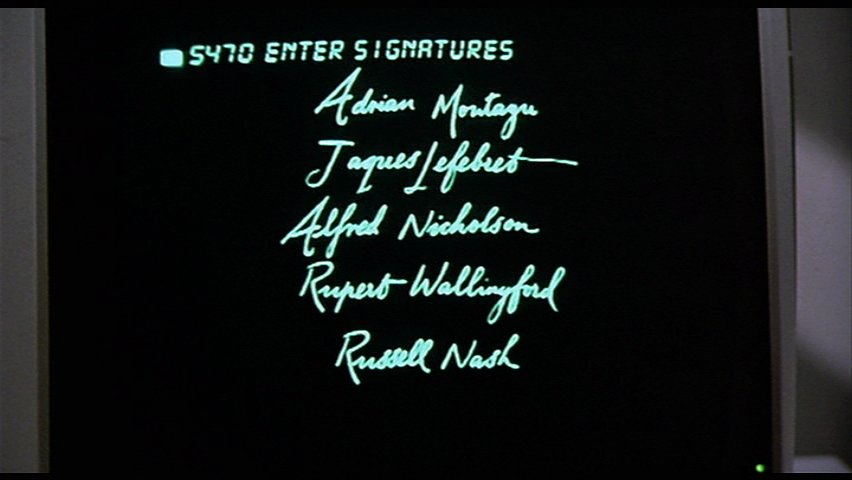 5470 ENTER SIGNATURES
Adrian Montagu
Jaques Lefebret
Alfred Nicholson
Rupert Wallingford
Russell Nash